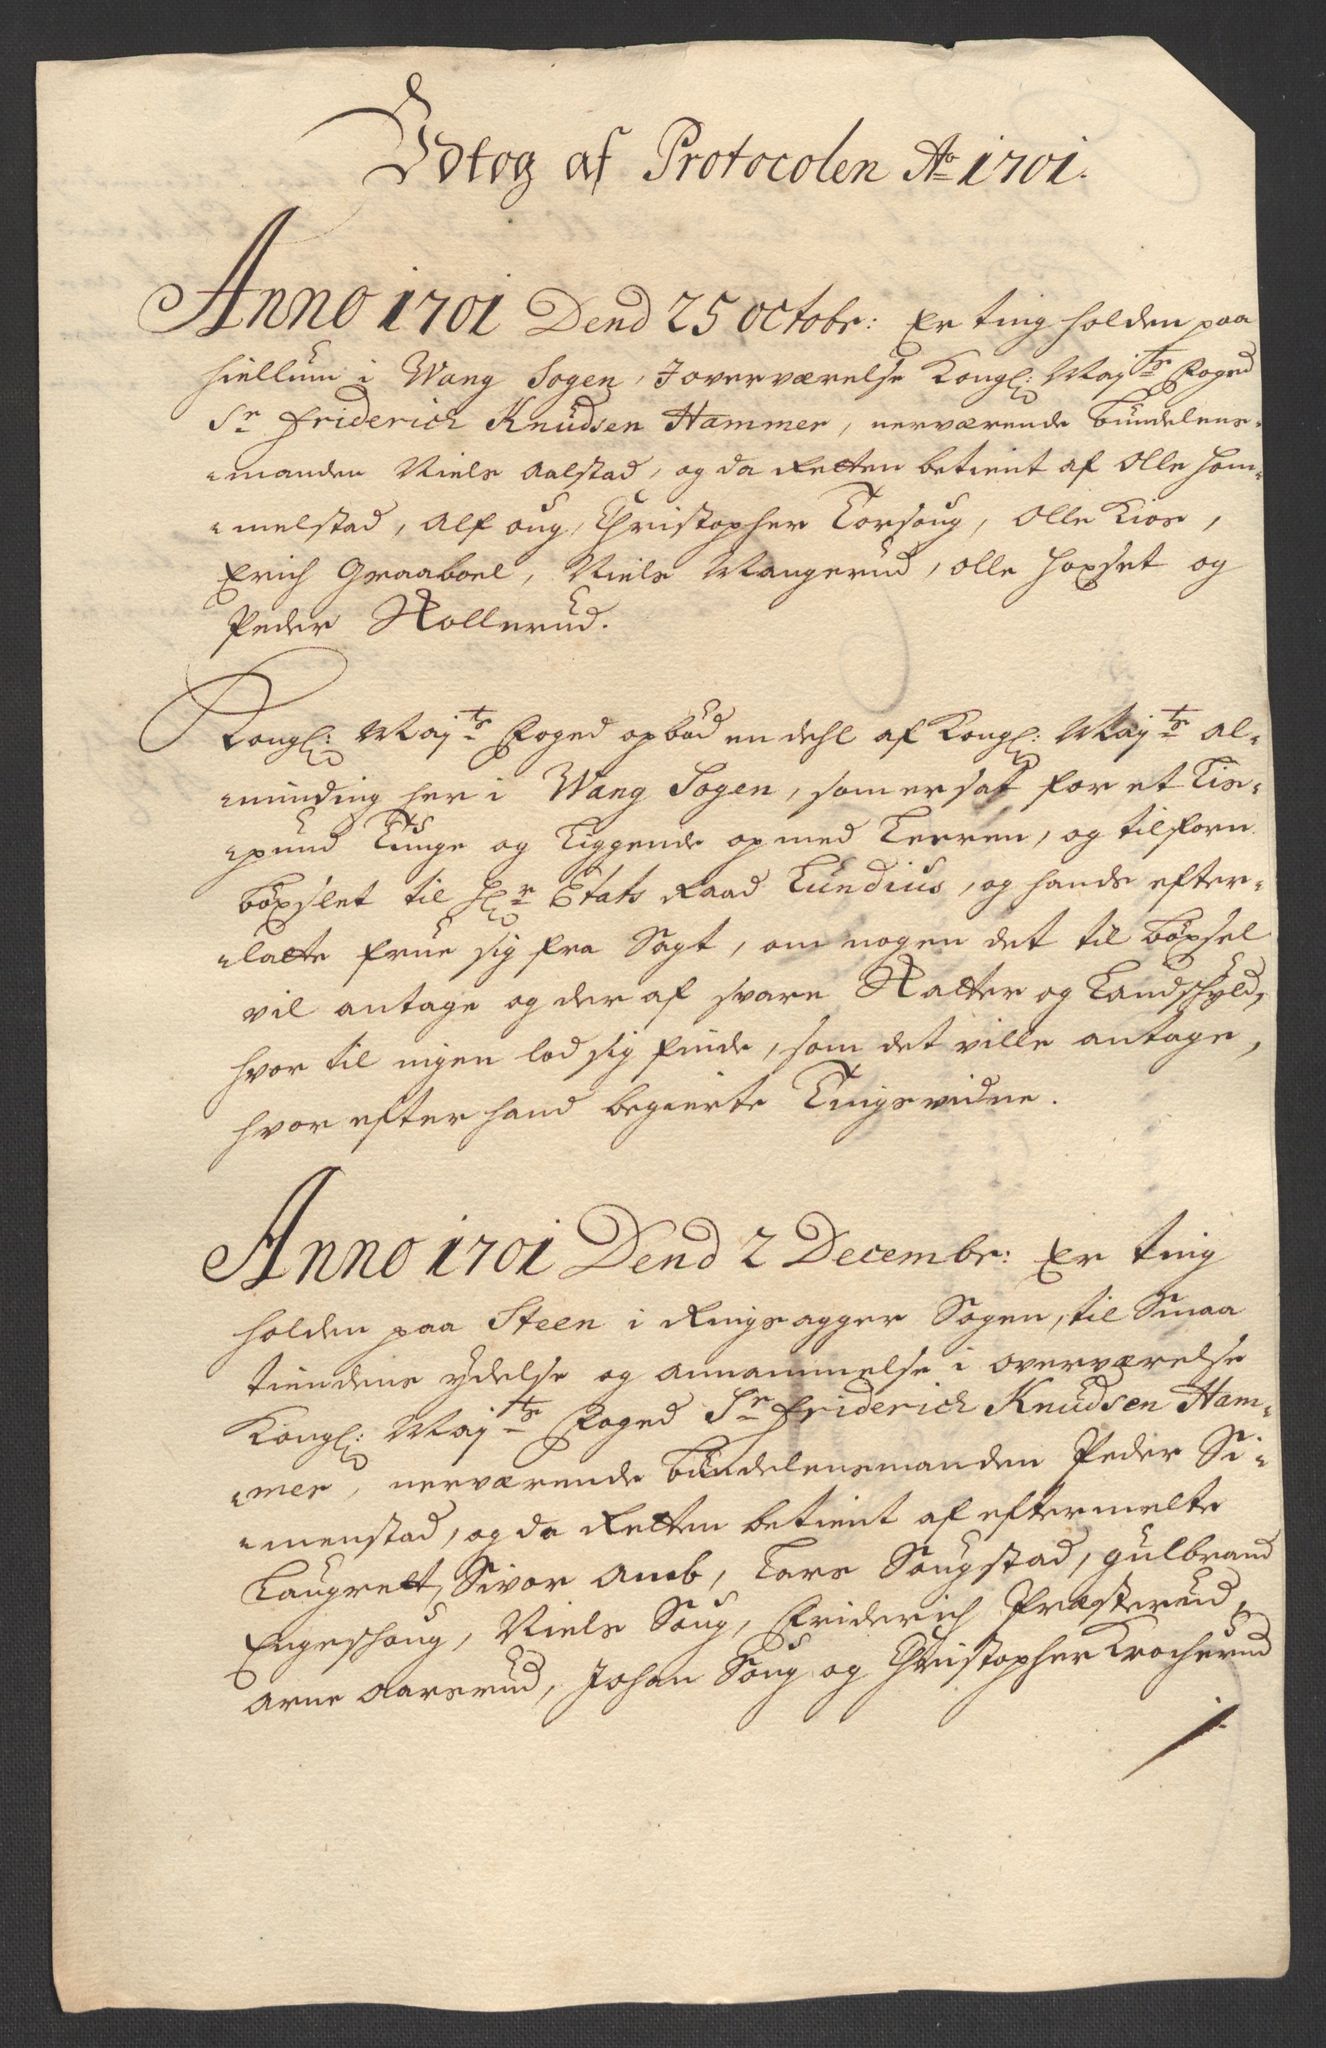 Udtog af Protocolen Ao 1701.
Anno 1701 Dend 25 Octobr: Er ting holden paa
Hiellum i Wang Sogen, J overværelse Kongl: Maÿts Foged
Sr Friderich Knudsen Hammer, nerværende Bundelens-
manden Niels Aalstad, og da Retten betient af Olle Hom-
melstad, Alf Oug, Christopher Torsoug, Olle Kios,
Erich Graaboel, Niels Mangerud, Olle Hoxset og
Peder Skollerud.
Kongl: Maÿts Foged opbød en dehl af Kongl: Maÿts Al-
minding her i Wang Sogen, som er sat for et Lis-
pund Tunge og Liggende op med Leeren, og tilforn
böxslet til Hr Etats Raad Lundius, og hands efter-
latte Frue sig fra Sagt, om nogen det til böxsel
vil antage og der af svare Skatter og Landschyld,
hvor til ingen lod sig finde, som det ville antage,
hvor efter hand begierte Tingsvidne.
Anno 1701 Dend 2 Decembr: Er ting
holden paa Steen i Ringsagger Sogen, til Smaa
tiendens ydelse og annammelse i overværelse
Kongl: Maÿts Foged Sr Friderich Knudsen Ham-
mer, nerværende Bundelensmanden Peder Si-
menstad, og da Retten betient af eftermelte
Laugrett, Sivor Aneb, Lars Sougstad, Gulbrand
Engeschoug, Niels Soug, Friderich Præsterud,
Arne Aarsrud, Johan Soug og Christopher Krocherud